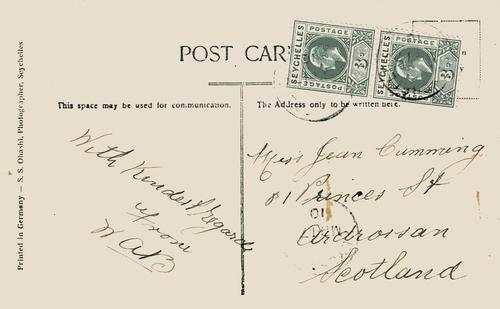 POST CAR
SEYCHELLES
POSTAGE
POSTAGE
SEYCHELLES
POSTAGE
This space may be used for communication.
The Address only to be written here.
With Kindest Regards
from
Miss Jean Cumming
81 Princes St
Ardrossan
Scotland
10
Printed in Germany — S. S. Ohashi, Photographer, Seychelles